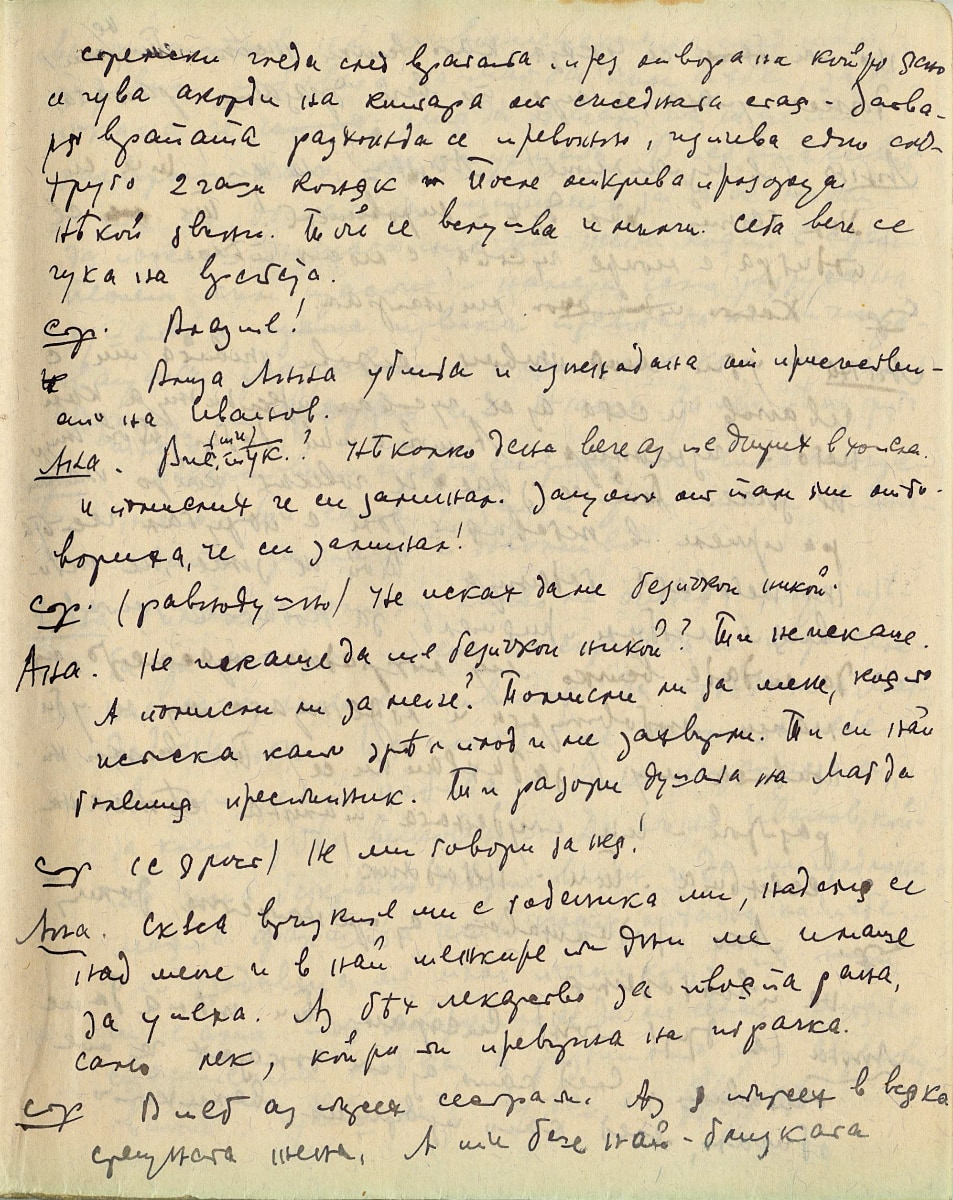 гледа след вратата, през отвора на който ясно
се чува акорди на китара от съседната стая - Затва-
ря вратата разхожда се тревожно, излива едно след
друго 2 чаши коняк После открива прозореца
нѣкой звъни. Той се вслушва и мълчи. Сега вече се
чука на вратата.
Влезте!
Влиза Анна убита и изненадана от присъстви-
ето на Иванов.
Анна. Вие, (ти) тук? Нѣколко дена вече аз те диря в хотела.
и помислих че си заминал. Защото от там ми отго-
вориха, че си заминал!
(равнодушно) Не исках да ме безпокои никой.
Анна. Не искаше да те безпокои никой? Ти не искаше.
А помисли ли за мене? Помисли ли за мене, която
изтиска като зрѣл плод и ме захвърли. Ти си най
големия престъпник. Ти разори душата на Магда
(с ярост) Не ми говори за нея!
Анна. Скъса връзките ми с годеника ми, надсмя се
над мене и в най тежките ти дни ме имаше
за утеха. Аз бѣх лекарство за твоята рана,
само лек, който ти превърна на играчка.
В теб аз търсех сестра ми. Аз я търсех в всяка
срещната жена. А ти беше най-близката